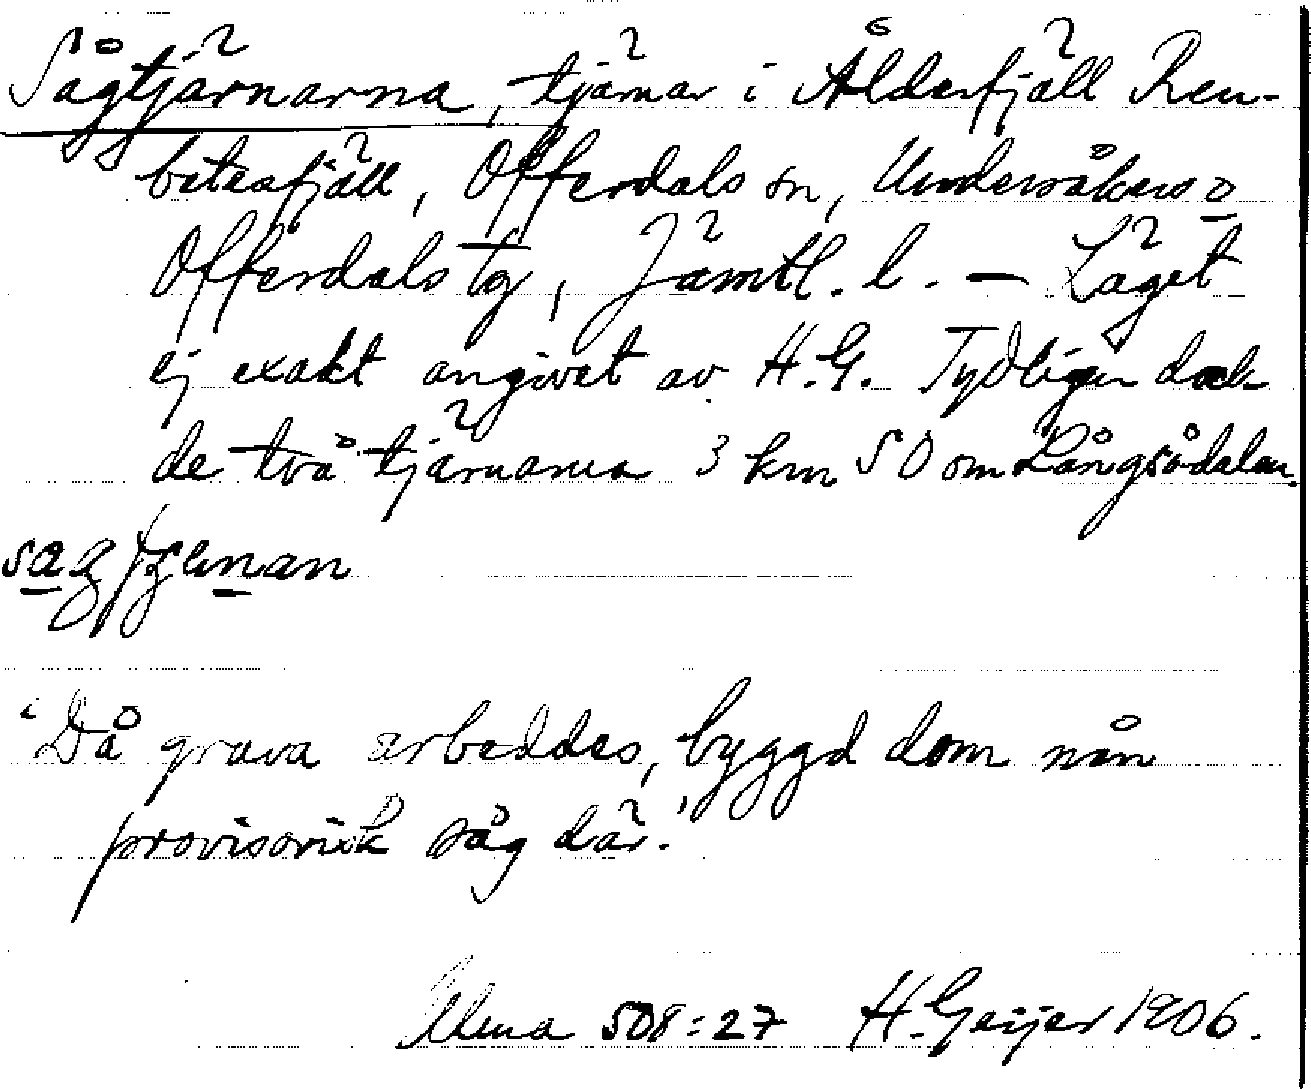 Sågtjärnarna, tjärnar i Ålderfjäll Ren-
betesfjäll, Offerdals sn, Undersåkers o
Offerdals tg, Jämtl. l. — Läget
ej exakt angivet av H.G. Tydligen dock
de två tjärnarna 3 km SO om Långsådalen.
"Då gruva arbeddes, byggd dom nån
provisorisk såg där."
Ulma 508:27 H. Geijer 1906.